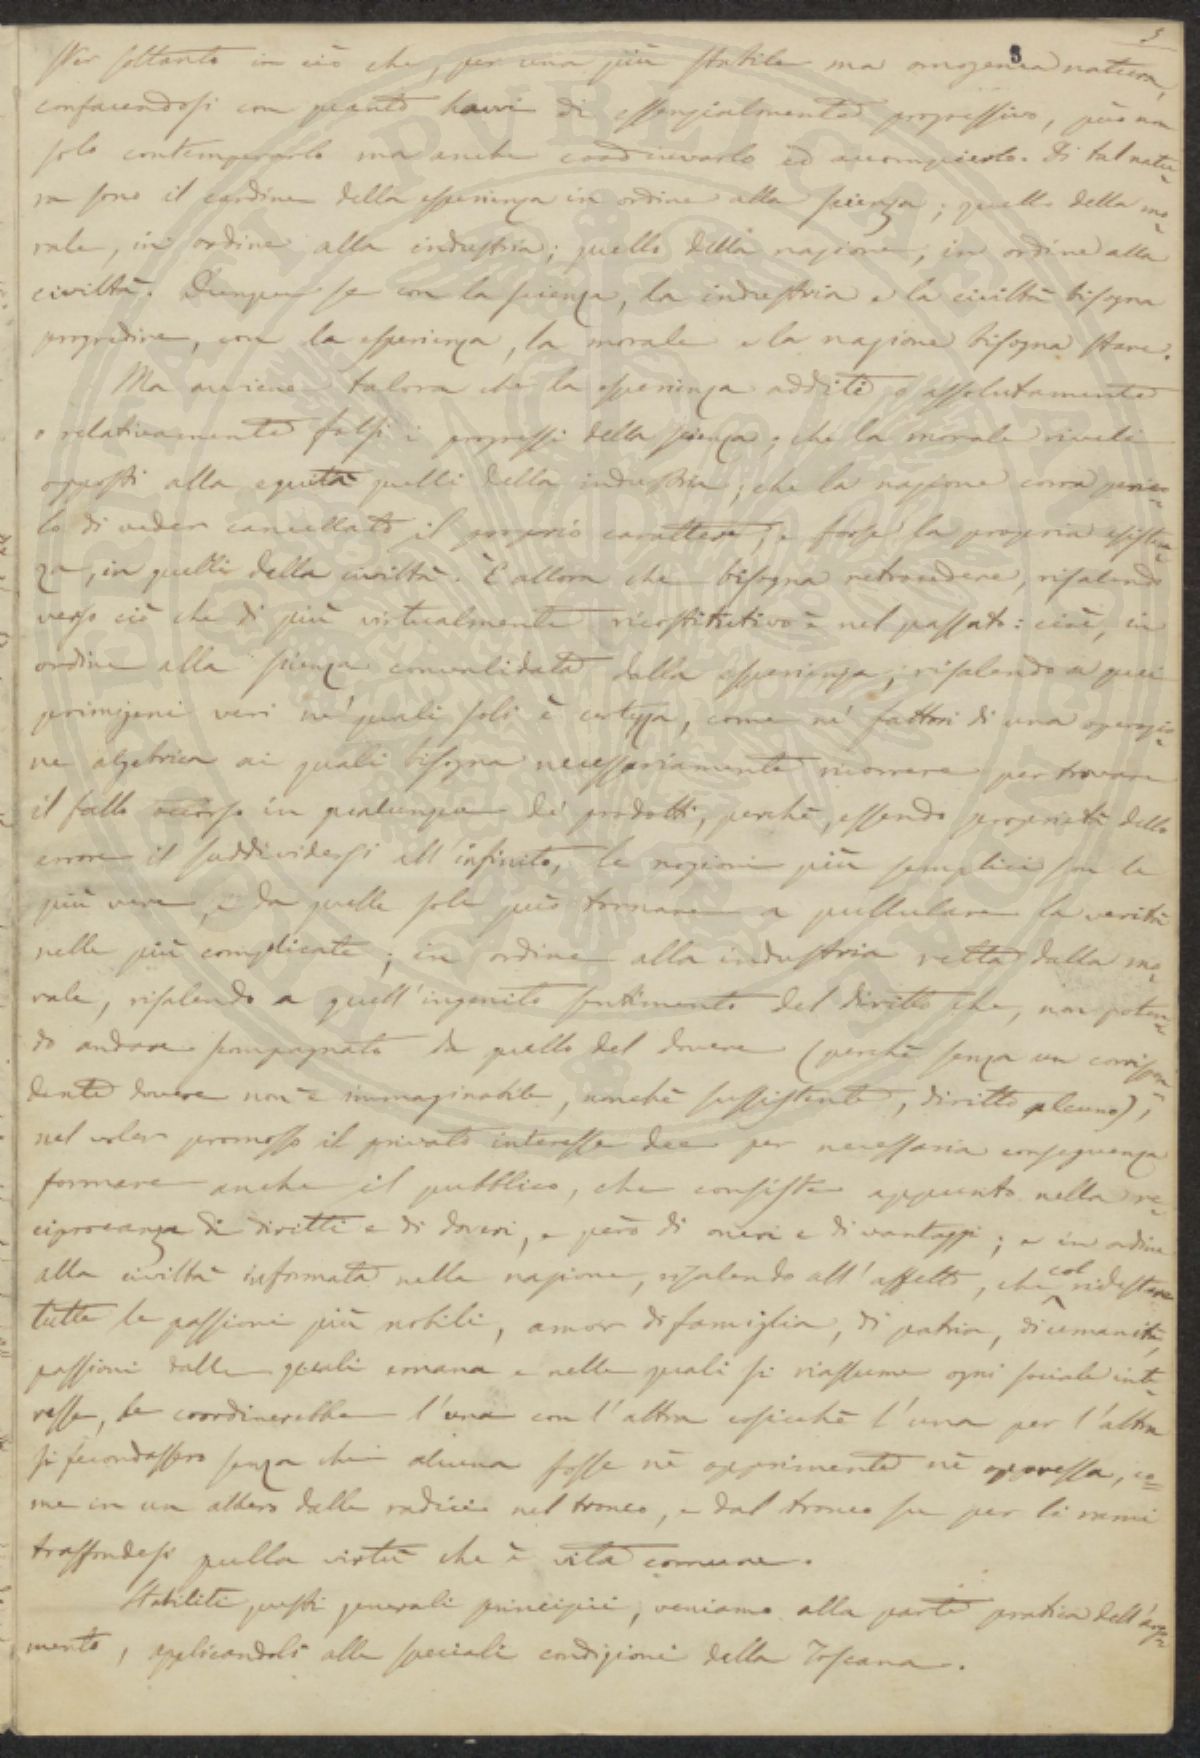 3
3
Star soltanto in ciò che, per una più stabile ma omogenea natura,
confacendosi con quanto havvi di essenzialmente progressivo, può non
solo contemperarlo ma anche coadiuvarlo ed accompierlo. Di tal natu=
ra sono il cardine della esperienza in ordine alla scienza; quello della mo=
rale, in ordine alla industria; quello della nazione, in ordine alla
civiltà. Dunque se con la scienza, la industria e la civiltà bisogna
progredire, con la esperienza, la morale e la nazione bisogna stare.
Ma avviene talora che la esperienza additi o assolutamente
o relativamente falsi i progressi della scienza; che la morale riveli
opposti alla equità quelli della industria; che la nazione corra perico=
lo di veder cancellato il proprio carattere, e forse la propria esisten=
za, in quelli della civiltà. È allora che bisogna retrocedere, risalendo
verso ciò che di più virtualmente ricostitutivo è nel passato: cioè, in
ordine alla scienza convalidata dalla esperienza, risalendo a quei
primigeni veri ne' quali soli è certezza, come ne' fattori di una operazio=
ne algebrica ai quali bisogna necessariamente ricorrere per trovare
il fallo occorso in qualunque de' prodotti, perchè, essendo proprietà dello
errore il suddividersi all'infinito, le nozioni più semplici son le
più vere, e da quelle sole può tornare a pullulare la verità
nelle più complicate; in ordine alla industria retta dalla mo=
rale, risalendo a quell'ingenito sentimento del diritto che, non poten=
do andare scompagnato da quello del dovere (perchè senza un corrispon=
dente dovere non è immaginabile, nonchè sussistente, diritto alcuno),
nel voler promosso il privato interesse dee per necessaria conseguenza
formare anche il pubblico, che consiste appunto nella re=
ciprocanza di diritti e di doveri, e però di oneri e di vantaggi; e in ordine
alla civiltà informata nella nazione, risalendo all'affetto, che col ridestare
tutte le passioni più nobili, amor di famiglia, di patria, di umanità,
passioni dalle quali emana e nelle quali si riassume ogni sociale inte=
resse, le coordinerebbe l'una con l'altra cosicchè l'una per l'altra
si fecondassero senza che alcuna fosse nè opprimente nè oppressa, co=
me in un albero dalle radici nel tronco, e dal tronco su per li rami
trasfondesi quella virtù che è vita comune.
Stabiliti questi generali principii, veniamo alla parte pratica dell'argo=
mento, applicandoli alle speciali condizioni della Toscana.